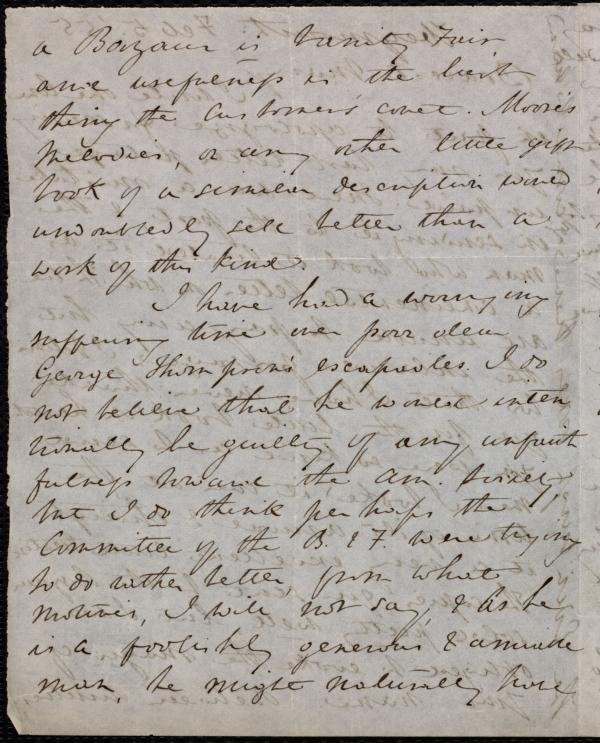 a Bazaar is Vanity Fair,
and usefulness is the last
thing the customers covet. Moore's
Melodies, or any other little gift
book of a similar description would
undoubtedly sell better than a
work of this kind.
I have had a worrying
suffering time over poor dear
George Thompson's escapades. I do
not believe that he would inten
tionally be guilty of any unfaith
fulness toward the Am. Society,
but I do think perhaps the
Committee of the B. & F. were trying
to do rather better, from what
motives, I will not say, & as he
is a foolishly generous & amiable
man, he might naturally have